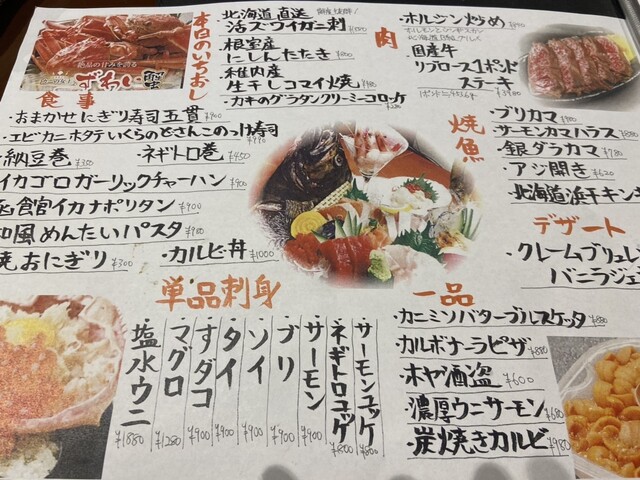 本日のいちおし
北海道直送
活ズワイガニ刺
・根室産
にしんたたき
・稚内産
生干しコマイ焼
・カキのグラタンクリーミーコロッケ
肉
・ホルジン炒め
・国産牛
リブロース1ポンド
ステーキ
食事
・おまかせにぎり寿司五貫 ¥900
・エビカニホタテいくらのどさんこのっけ寿司
納豆巻 ¥350
・ネギトロ巻 ¥450
イカゴロガーリックチャーハン ¥900
函館官イカナポリタン ¥900
和風めんたいパスタ ¥980
焼おにぎり ¥300
・カルビ丼 ¥1000
焼魚
・ブリカマ ¥780
・サーモンカマハラス ¥880
・銀ダラカマ ¥780
・アジ開き ¥620
・北海道浜チキン
デザート
・クレームブリュレ
バニラジェ
単品刺身
塩水ウニ ¥1880
マグロ ¥1280
すダコ ¥900
タイ ¥900
ソイ ¥900
ブリ ¥900
サーモン ¥900
ネギトロユッケ ¥800
サーモンユッケ ¥800
一品
・カニミソバターブルスケッタ ¥880
・カルボナーラピザ ¥880
・ホヤ酒盗 ¥600
・濃厚ウニサーモン ¥680
・炭焼きカルビ ¥980